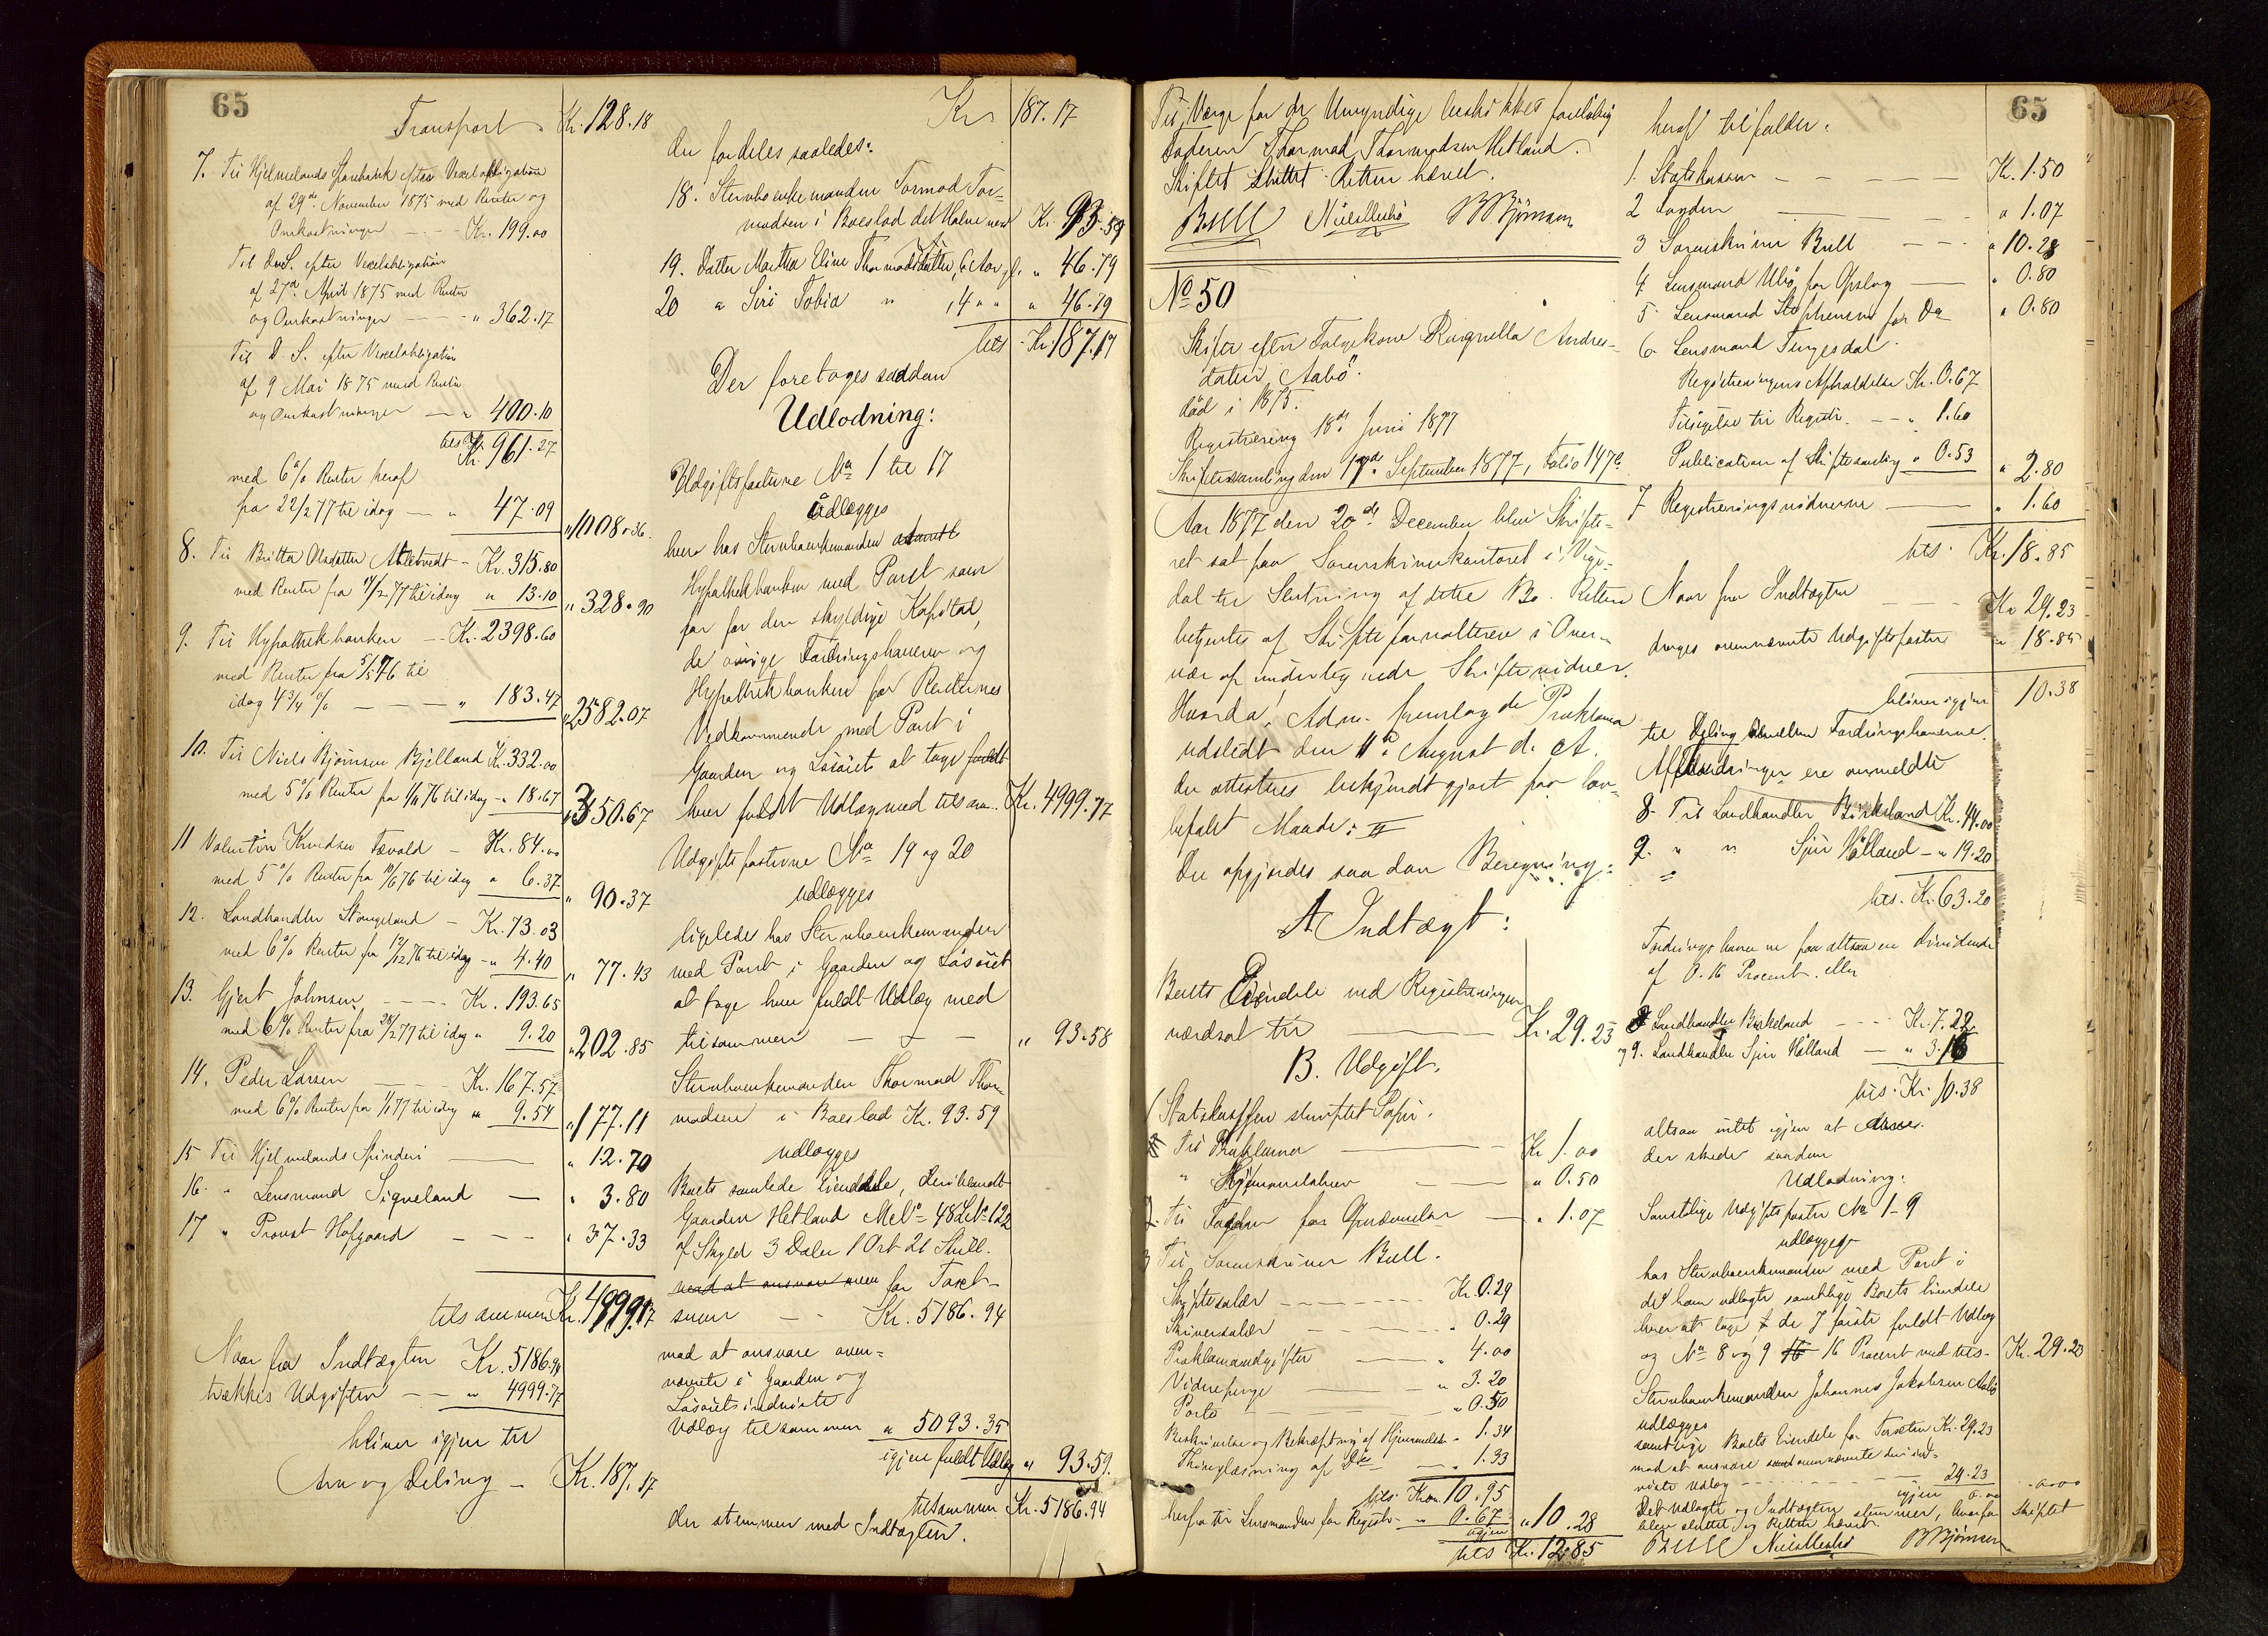 65
Transport " Kr. 128.18
7. Til Hjelmelands Sparebank efter Vexelobligation
af 29de November 1875 med Renter og
Omkostninger — Kr. 199.00
Til D.S. efter Vexelobligation
af 27de April 1875 med Renter
og Omkostninger — " 362.17
Til D. S. efter Vexelobligation
af 9 Mai 1875 med Renter
og Omkostninger — " 400.10
tils Kr. 961.27
med 6% Renter heraf
fra 22/2 77 til idag — " 47.09
" 1008.36
8. Til Britta Olsdatter — Kr. 315.80
med Renter fra 77 til idag " 13.10
" 328.90
9. Til Hypothekbanken — Kr. 2398.60
med Renter fra 5/5 76 til
idag 4 3/4 % — " 183.47
" 2582.07
10. Til Niels Bjørnsen Bjelland Kr. 332.00
med 5% Renter fra 76 til idag - " 18.67
" 350.67
11 Valentin Knudsen — Kr. 84.00
med 5% Renter fra 76 til idag " 6.37
" 90.37
12. Landhandler Stangeland — Kr. 73.03
med 6% Renter fra 76 til idag - " 4.40
" 77.43
13. Gjert Johnsen — Kr. 193.65
med 6% Renter fra 77 til idag " 9.20
" 202.85
14. Peder Larsen — Kr. 167.57
med 6% Renter fra 77 til idag " 9.54
" 177.11
15 Til Hjelmelands Spinderi — " 12.70
16. " Lensmand Sigveland — " 3.80
17 " Provst Hofgaard — " 37.33
tilsammen Kr. 4999.77
Naar fra Indtægten Kr. 5186.94
trækkes Udgiften — " 4999.77
bliver igjen til
Arv og Deling — Kr. 187.17
Kr 187.17
der fordeles saaledes:
18. Stervboenkemanden Tormod Tor=
modsen i Boeslod det Halve med Kr. 93.59
19. Datter Martha Eline Thormodsdatter, 6 Aar gl. " 46.79
20 " Siri Tobia " , 4 " " " 46.79
tils Kr. 187.17
Der foretages saadan
Udlodning:
Udgiftsposterne No 1 til 17
udlægges
hver hos Stervboenkemanden
Hypothekbanken med Pant som
før for den skyldige Kapital,
de øvrige Fordringshavere og
Hypothekbanken for Renternes
Vedkommende med Pant i
Gaarden og Løsøret at tage fuldt
hver fuldt Udlæg med tilsam. Kr. 4999.77
Udgiftsposterne No 19 og 20
udlægges
ligeledes hos Stervboenkemanden
med Pant i Gaarden og Løsøret
at tage hver fuldt Udlæg med
tilsammen — — — " 93.58
Stervboenkemanden Thormod Thor=
modsen i Boeslod Kr. 93.59
udlægges
Boets samlede Eiendele, deriblandt
Gaarden Hetland M.No 48 L.No 122
af Skyld 3 Daler 1 Ort 21 Skill.
mod at ansvare oven for Taxt-
sum — Kr. 5186.94
mod at ansvare oven=
nævnte i Gaarden og
Løsøret indviste
Udlæg tilsammen " 5093.35
igjen fuldt Udlæg " 93.59.
tilsammen Kr. 5186.94
der stemmer med Indtægten.
65
Til Værge for de Umyndige beskikkes foreløbig
Faderen Thormod Thormodsen Hetland.
Skiftet sluttet. Retten hævet.
Bull B Bjørnsen
No 50
Skifte efter Folgekone Ragnilla Andreas-
datter Aabø.
død i 1875.
Registrering 18de Juni 1877
Skiftesamling den 17de September 1877, Folio 147b.
Aar 1877 den 20de December blev Skifte-
ret sat paa Sorenskriverkontoret i Vige-
dal til Slutning af dette Bo. Retten
betjentes af Skifteforvalteren i Over-
vær af undertegnede Skiftevidner.
Hvorda! Adm. fremlagde Proklama
udstedt den 11te August d. A.
der attesteres bekjendtgjort paa lov-
befalet Maade: II
Der opgjordes saadan Beregning:
A Indtægt:
Boets Eiendele ved Registreringen
værdsat til — Kr. 29.23
B. Udgift.
1 Statskassen stemplet Papir.
Til Proklama — Kr 1.00
" Hjemmelsbrev — " 0.50
2. Til Fogden for Opnævnelse — " 1.07
3 Til Sorenskriver Bull.
Skiftesalær — Kr. 0.29
Skriversalær — " 0.29
Proklamaudgifter — " 4.00
Vidnepenge — " 3.20
Porto — " 0.50
Beskrivelse og Bekræftning af Hjemmelsbr. " 1.34
Thinglæsning af Do — " 1.33
tils. Kroner 10.95
herfra til Lensmanden for Registr. " 0.67
igjen " 10.28
tils Kr. 12.85
heraf tilfalder:
1. Statskassen — Kr. 1.50
2 Fogden — " 1.07
3 Sorenskriver Bull — " 10.28
4 Lensmand Ulsø for Opslag — " 0.80
5 Lensmand Stephensen for Do " 0.80
6 Lensmand Tengesdal.
Registreringens Afholdelse Kr. 0.67
Tilsigelse til Registr. — " 1.60
Publication af Skiftesamling " 0.53
" 2.80
7 Registreringsvidnerne — " 1.60
tils. Kr. 18.85
Naar fra Indtægten — Kr 29.23
drages ovennævnte Udgiftsposter " 18.85
bliver igjen 10.38
til Deling imellem Fordringshaverne.
Af Fordringer ere anmeldte
8. Til Landhandler Birkeland Kr. 44.00
9. " " Sjur Hølland — " 19.20
tils. Kr. 63.20
Fordringshaverne faa altsaa en Dividende
af 0.16 Procent. eller
8 Landhandler Birkeland — Kr. 7.22
og 9. Landhandler Sjur Hølland — " 3.16
tils. Kr. 10.38
altsaa intet igjen at Arve.
der skeder saadan
Udlodning:
Samtlige Udgiftsposter No 1-9
udlægges
hos Stervboenkemanden med Pant i
de ham udlagte samtlige Boets Eiendele
hver at tage, de 7 første fuldt Udlæg
og No 8 og 9 16 Procent med tils. Kr. 29.23
Stervboenkemanden Johannes Jakobsen Aabø
udlægges
samtlige Boets Eiendele for Taxten Kr. 29.23
mod at ansvare ovennævnte deri ind-
viste Udlæg — 29.23
igjen 0.00 " 0.00
Det Udlagte og Indtægten stemmer, hvorfor Skiftet
blev sluttet og Retten hævet.
Bull B Bjørnsen